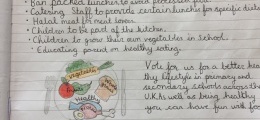 • Ban packed lunches to avoid processed
• Catering Staff to provide certain lunches for specific diets
• Halal meat for meat lovers.
• Children to be part of the kitchen.
• Children to grow their own vegetables in school.
• Educating parent on healthy eating.
vegetables
Healthy
Vote for us for a better hea
thy lifestyle in primary and
secondary schools across the
U.K. As well as being healthy
you can have fun with foo